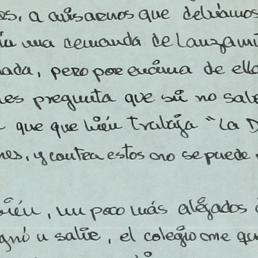 os, a avisarnos que debíamos
una demanda de Lanzami
nada, pero por encima de ello
es pregunta que si no sale
que que bién trabaja "La D
nes, y contra estos no se puede
bién, un poco más alejados
u salie, el colegio me qu